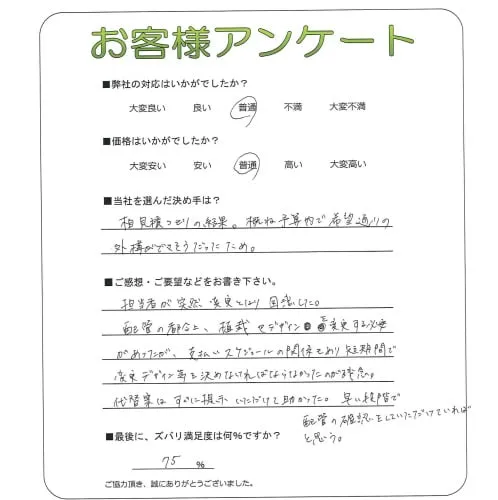 お客様アンケート
■弊社の対応はいかがでしたか?
大変良い 良い 普通 不満 大変不満
■価格はいかがでしたか?
大変安い 安い 普通 高い 大変高い
■当社を選んだ決め手は?
相見積つもりの結果。概ね予算内で希望通りの
外構ができそうだったため。
■ご感想・ご要望などをお書き下さい。
担当者が突然変更となり困惑した。
配管の都合上、植栽やデザインを変更する必要
があったが、支払いスケジュールの関係もあり短期間で
変更デザイン等を決めなければならなかったのが残念。
代替案はすぐに提示いただけて助かった。早い段階で
配管の確認をしていただけていれば
と思う。
■最後に、ズバリ満足度は何%ですか?
75 %
ご協力頂き、誠にありがとうございました。